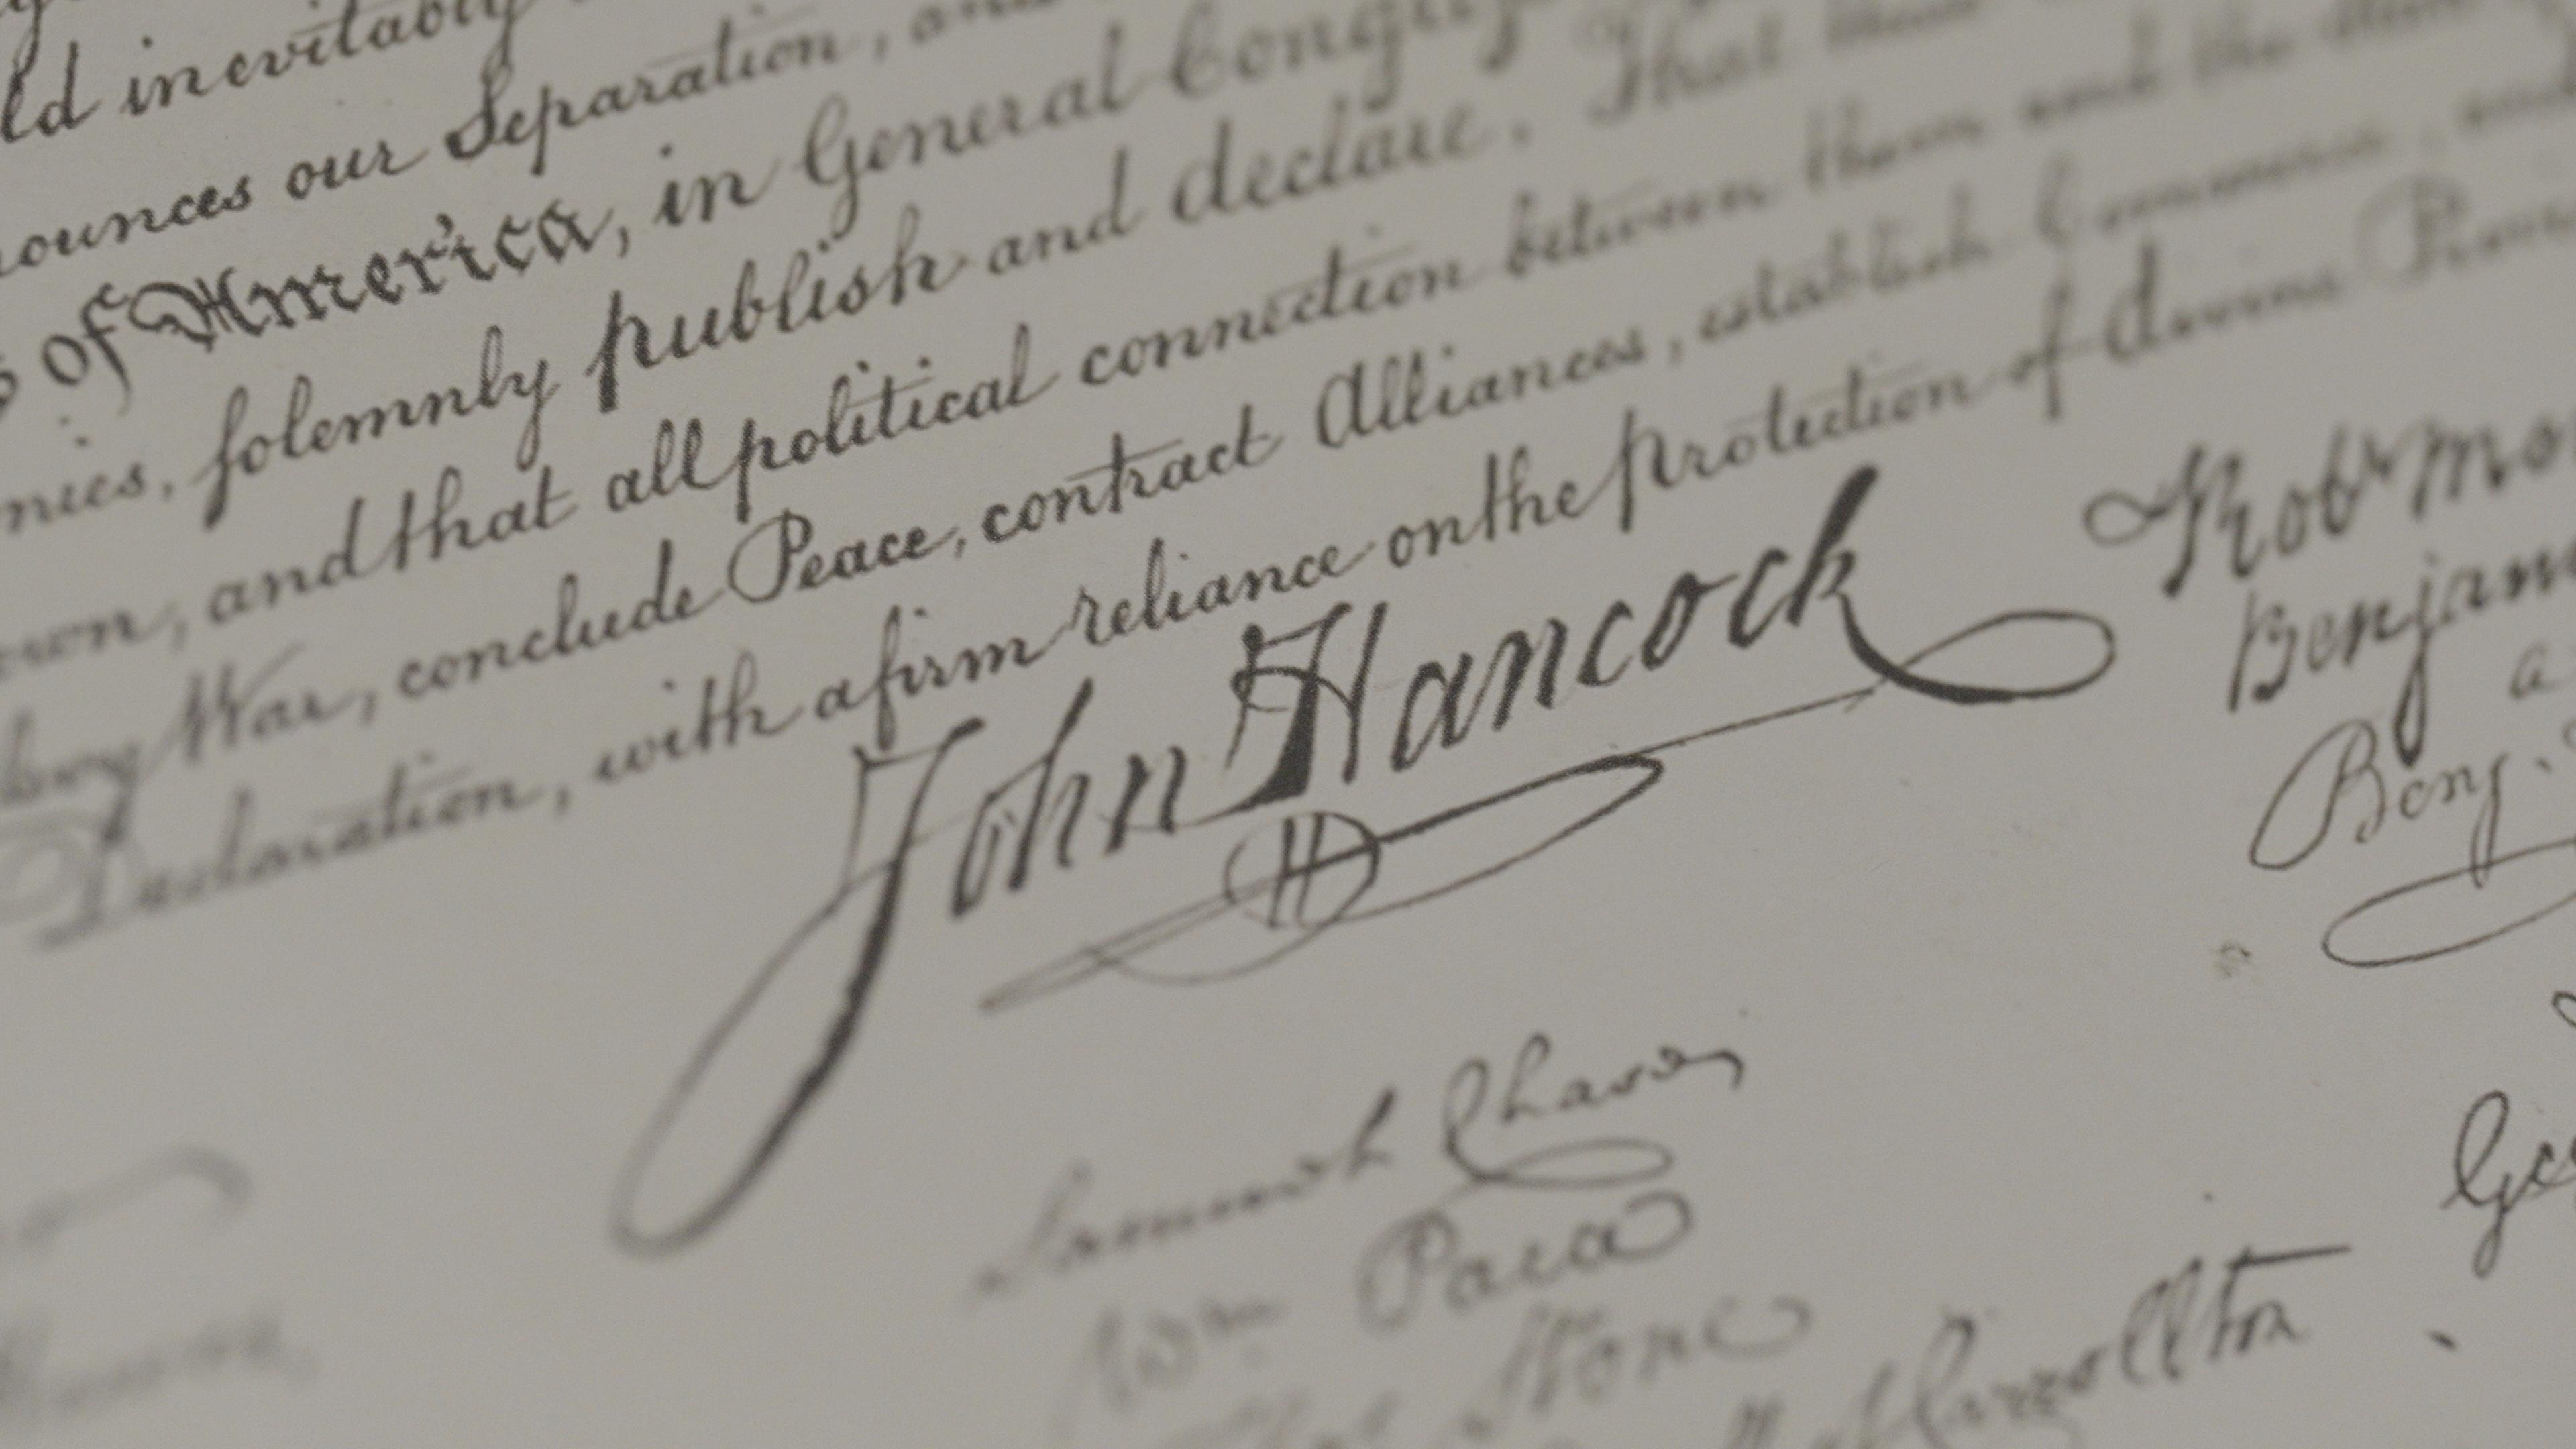 ld inevitably
nounces our Separation, and
of America, in General Congress
nies, solemnly publish and declare, That these
own, and that all political connection between them and the State
levy War, conclude Peace, contract Alliances, establish Commerce, and
Declaration, with a firm reliance on the protection of divine Prov
John Hancock
H
Robt Mo
Benjami
Benj.
Samuel Chase
Wm Paca
Stone
of Carrollton
Ge